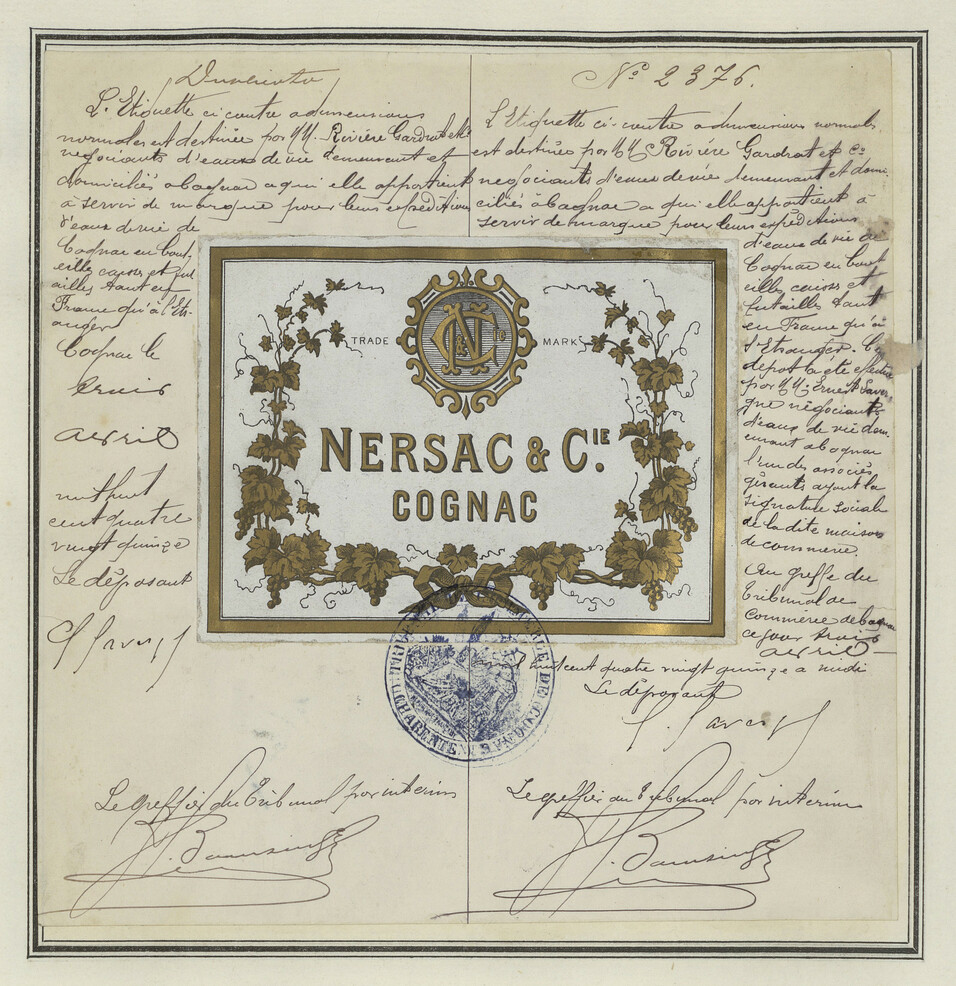 Duplicata
L'Etiquette ci contre a dimensions
normales est destinée par MM. Rivière Gardrat et Cie
négociants d'eaux de vie demeurant et
domiciliés à Cognac a qui elle appartient
à servir de marque pour leurs expéditions
d'eaux de vie de
Cognac en bout
eille caisses et fut
ailles tant en
France qu'à l'Etr
anger
Cognac le
trois
avril
mil huit
cent quatre
vingt quinze
Le déposant
No 2376.
L'Etiquette ci-contre a dimensions normales
est destinée par MM Rivière Gardrat et Co
négociants d'eaux de vie demeurant et domi
ciliés à Cognac a qui elle appartient à
servir de marque pour leurs expéditions
d'eaux de vie de
Cognac en bout
eille caisses et
futaille tant
en France qu'à
l'Etranger. Ce
dépot a été effectué
par MM. Ernest Saver
gne négociants
d'eaux de vie dem
eurant a Cognac
l'un des associés
gérants ayant la
signature sociale
de la dite maison
de commerce.
Au greffe du
Tribunal de
Commerce de Cognac
ce jour trois
avril
mil huit cent quatre vingt quinze a midi
Le déposant
TRADE MARK
NC & CIE
NERSAC & CIE.
COGNAC
Le greffier du Tribunal par interim
Le greffier du Tribunal par interim